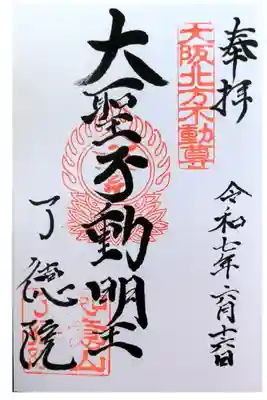 奉拝
令和七年六月十六日
大阪北方不動尊
大聖不動明王
了德院